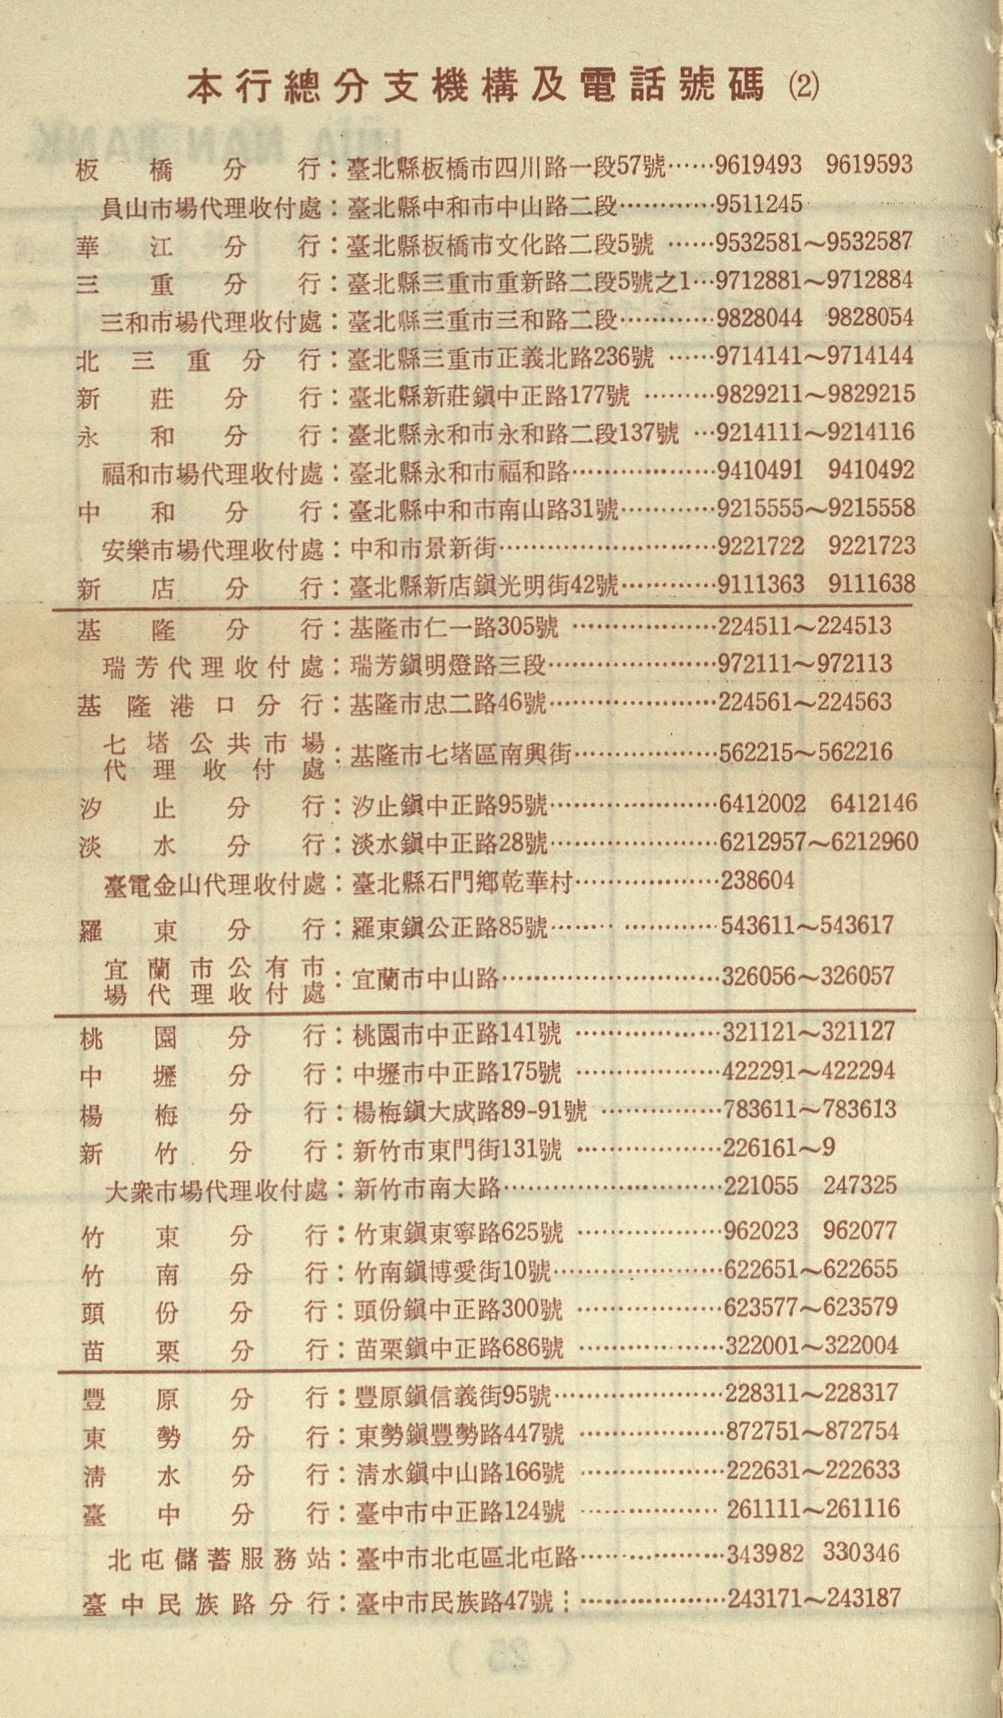 本行總分支機構及電話號碼 (2)
板橋分行：臺北縣板橋市四川路一段57號……9619493 9619593
員山市場代理收付處：臺北縣中和市中山路二段…………9511245
華江分行：臺北縣板橋市文化路二段5號……9532581～9532587
三重分行：臺北縣三重市重新路二段5號之1…9712881～9712884
三和市場代理收付處：臺北縣三重市三和路二段…………9828044 9828054
北三重分行：臺北縣三重市正義北路236號……9714141～9714144
新莊分行：臺北縣新莊鎮中正路177號………9829211～9829215
永和分行：臺北縣永和市永和路二段137號…9214111～9214116
福和市場代理收付處：臺北縣永和市福和路………………9410491 9410492
中和分行：臺北縣中和市南山路31號…………9215555～9215558
安樂市場代理收付處：中和市景新街………………………9221722 9221723
新店分行：臺北縣新店鎮光明街42號…………9111363 9111638
基隆分行：基隆市仁一路305號………………224511～224513
瑞芳代理收付處：瑞芳鎮明燈路三段…………………972111～972113
基隆港口分行：基隆市忠二路46號…………………224561～224563
七堵公共市場代理收付處：基隆市七堵區南興街………………562215～562216
汐止分行：汐止鎮中正路95號…………………6412002 6412146
淡水分行：淡水鎮中正路28號…………………6212957～6212960
臺電金山代理收付處：臺北縣石門鄉乾華村………………238604
羅東分行：羅東鎮公正路85號…………………543611～543617
宜蘭市公有市場代理收付處：宜蘭市中山路………………………326056～326057
桃園分行：桃園市中正路141號………………321121～321127
中壢分行：中壢市中正路175號………………422291～422294
楊梅分行：楊梅鎮大成路89-91號……………783611～783613
新竹分行：新竹市東門街131號………………226161～9
大衆市場代理收付處：新竹市南大路………………………221055 247325
竹東分行：竹東鎮東寧路625號………………962023 962077
竹南分行：竹南鎮博愛街10號…………………622651～622655
頭份分行：頭份鎮中正路300號………………623577～623579
苗栗分行：苗栗鎮中正路686號………………322001～322004
豐原分行：豐原鎮信義街95號…………………228311～228317
東勢分行：東勢鎮豐勢路447號………………872751～872754
清水分行：清水鎮中山路166號………………222631～222633
臺中分行：臺中市中正路124號………………261111～261116
北屯儲蓄服務站：臺中市北屯區北屯路………………343982 330346
臺中民族路分行：臺中市民族路47號…………………243171～243187